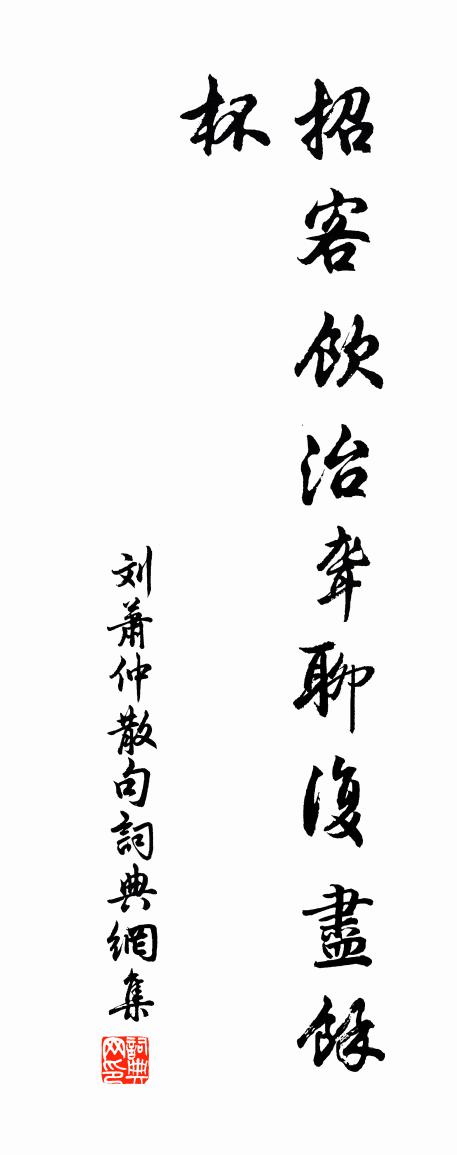 招客飲治聾聊復盡餘
杯
刘蕭仲散句詞典網集
詞典
网印